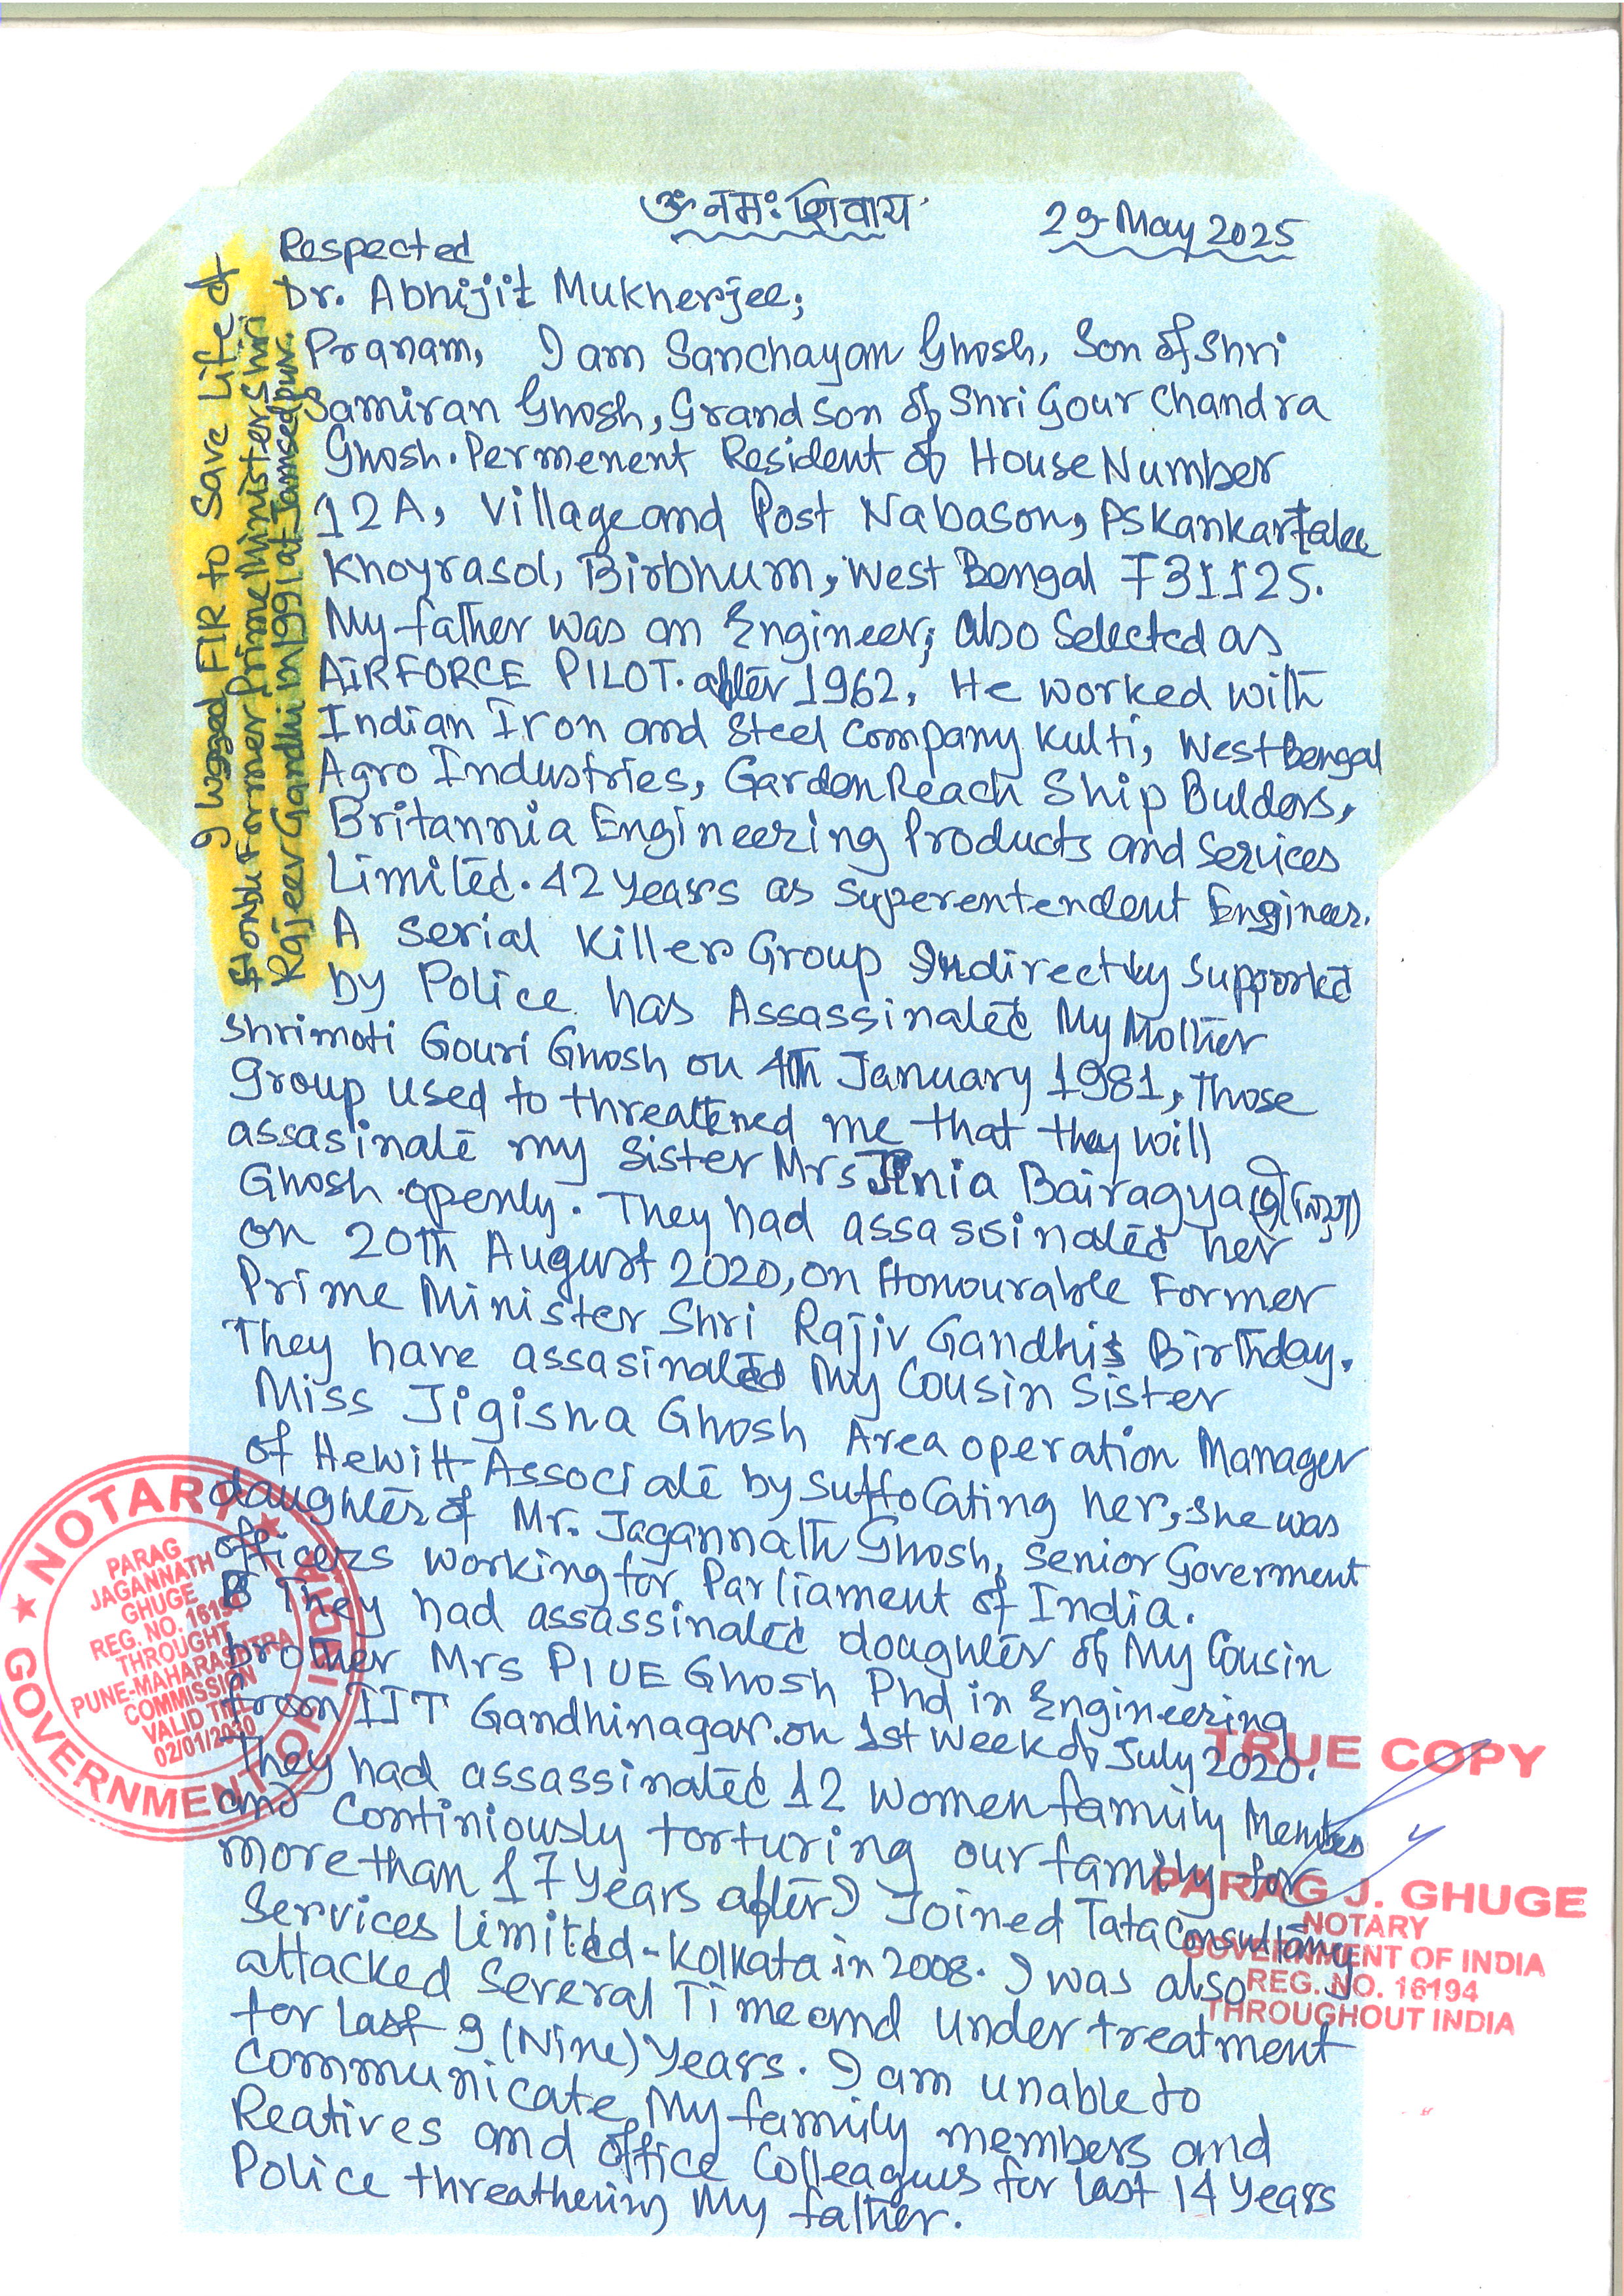 ॐ नमः शिवाय
29 May 2025
Respected
Dr. Abhijit Mukherjee,
Pranam, I am Sanchayan Ghosh, Son of Shri
Samiran Ghosh, Grandson of Shri Gour Chandra
Ghosh. Permenent Resident of House Number
12A, Village and Post Nabason, PS Kankartalee
Khoyrasol, Birbhum, West Bengal 731125.
My father was an Engineer, also Selected as
AIRFORCE PILOT. after 1962, He worked with
Indian Iron and Steel Company Kulti, West Bengal
Agro Industries, Garden Reach Ship Bulders,
Britannia Engineering Products and Services
Limited. 42 years as Superentendent Engineer.
A Serial Killer Group Indirectly Supported
by Police has Assassinated My Mother
Shrimati Gouri Ghosh on 4th January 1981, Those
group used to threatened me that they will
assasinate my sister Mrs Jinia Bairagya
Ghosh openly. They had assassinated her
on 20th August 2020, on Honourable Former
Prime Minister Shri Rajiv Gandhi's Birthday.
They have assasinated My Cousin Sister
Miss Jigisha Ghosh Area operation Manager
of Hewitt Associate by suffocating her, she was
daughter of Mr. Jagannath Ghosh, Senior Goverment
officers working for Parliament of India.
They had assassinated doughter of My Cousin
brother Mrs PIUE Ghosh Phd in Engineering
from IIT Gandhinagar. on 1st Week of July 2020.
They had assassinated 12 women family Members
and Continiously torturing our family for
more than 17 Years after I Joined Tata Consultancy
Services Limited - Kolkata in 2008. I was also
attacked Several Time and under treatment
for Last 9 (Nine) Years. I am unable to
Communicate My family members and
Reatives and office Colleagues for last 14 years
Police threathening My father.
I logged FIR to Save Life of
Honble Former Prime Minister Shri
Rajeev Gandhi in 1991 at Jamsedpur.
NOTARY
GOVERNMENT OF INDIA
PARAG
JAGANNATH
GHUGE
REG. NO. 16194
THROUGHT
PUNE-MAHARASHTRA
COMMISSION
VALID TILL
02/01/2030
TRUE COPY
PARAG J. GHUGE
NOTARY
GOVERNMENT OF INDIA
REG. NO. 16194
THROUGHOUT INDIA